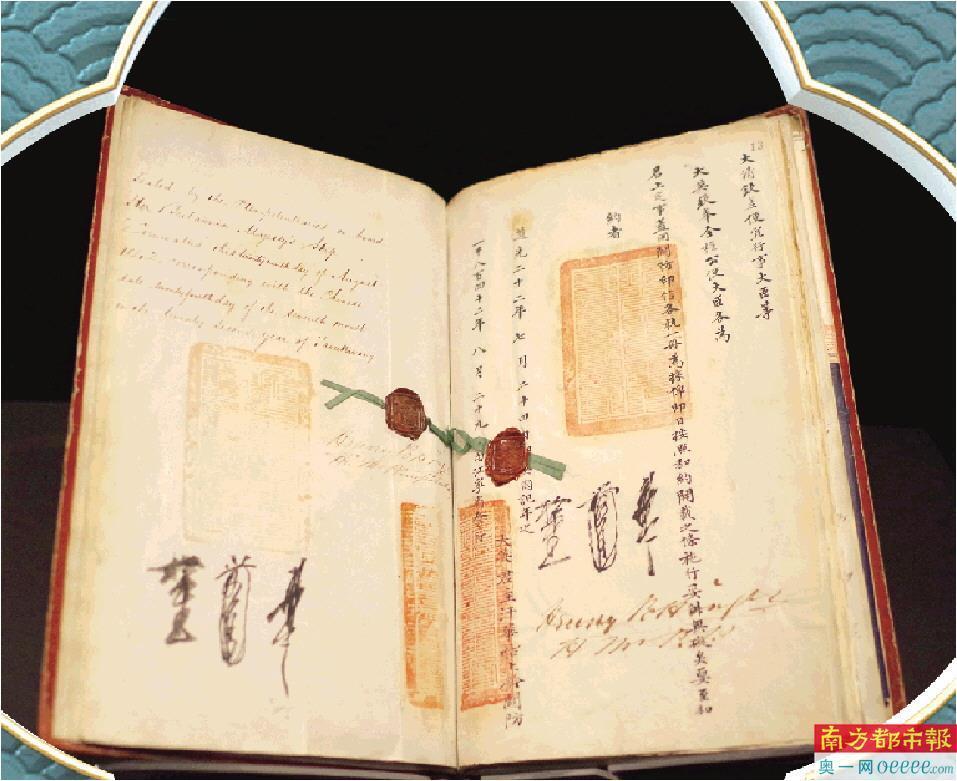 Sealed by the Plenipotentiaries on board
Her Britannic Majesty's Ship
Cornwallis this twenty ninth day of August
1842 corresponding with the Chinese
date twenty fourth day of the seventh month
in the twenty second year of Taoukwang
13
大清欽差便宜行事大臣等
大英欽奉全權公使大臣各為
君上定事蓋用關防印信各執一冊為據俾即日按照和約開載之條施行妥辦無礙矣要至和
約者
道光二十二年七月二十四日即英國記年之
一千八百四十二年八月二十九日
大英君主汗華船上鈐關防
Henry Pottinger
H. M. Plen
Henry Pottinger
H M Plen
南方都市報
奥一网oeeee.com